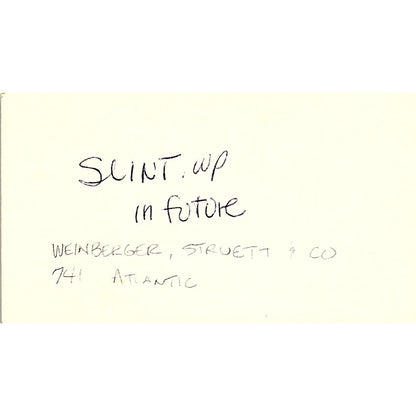 SLINT. WP
in future
WEINBERGER, STRUETT & CO
741 ATLANTIC